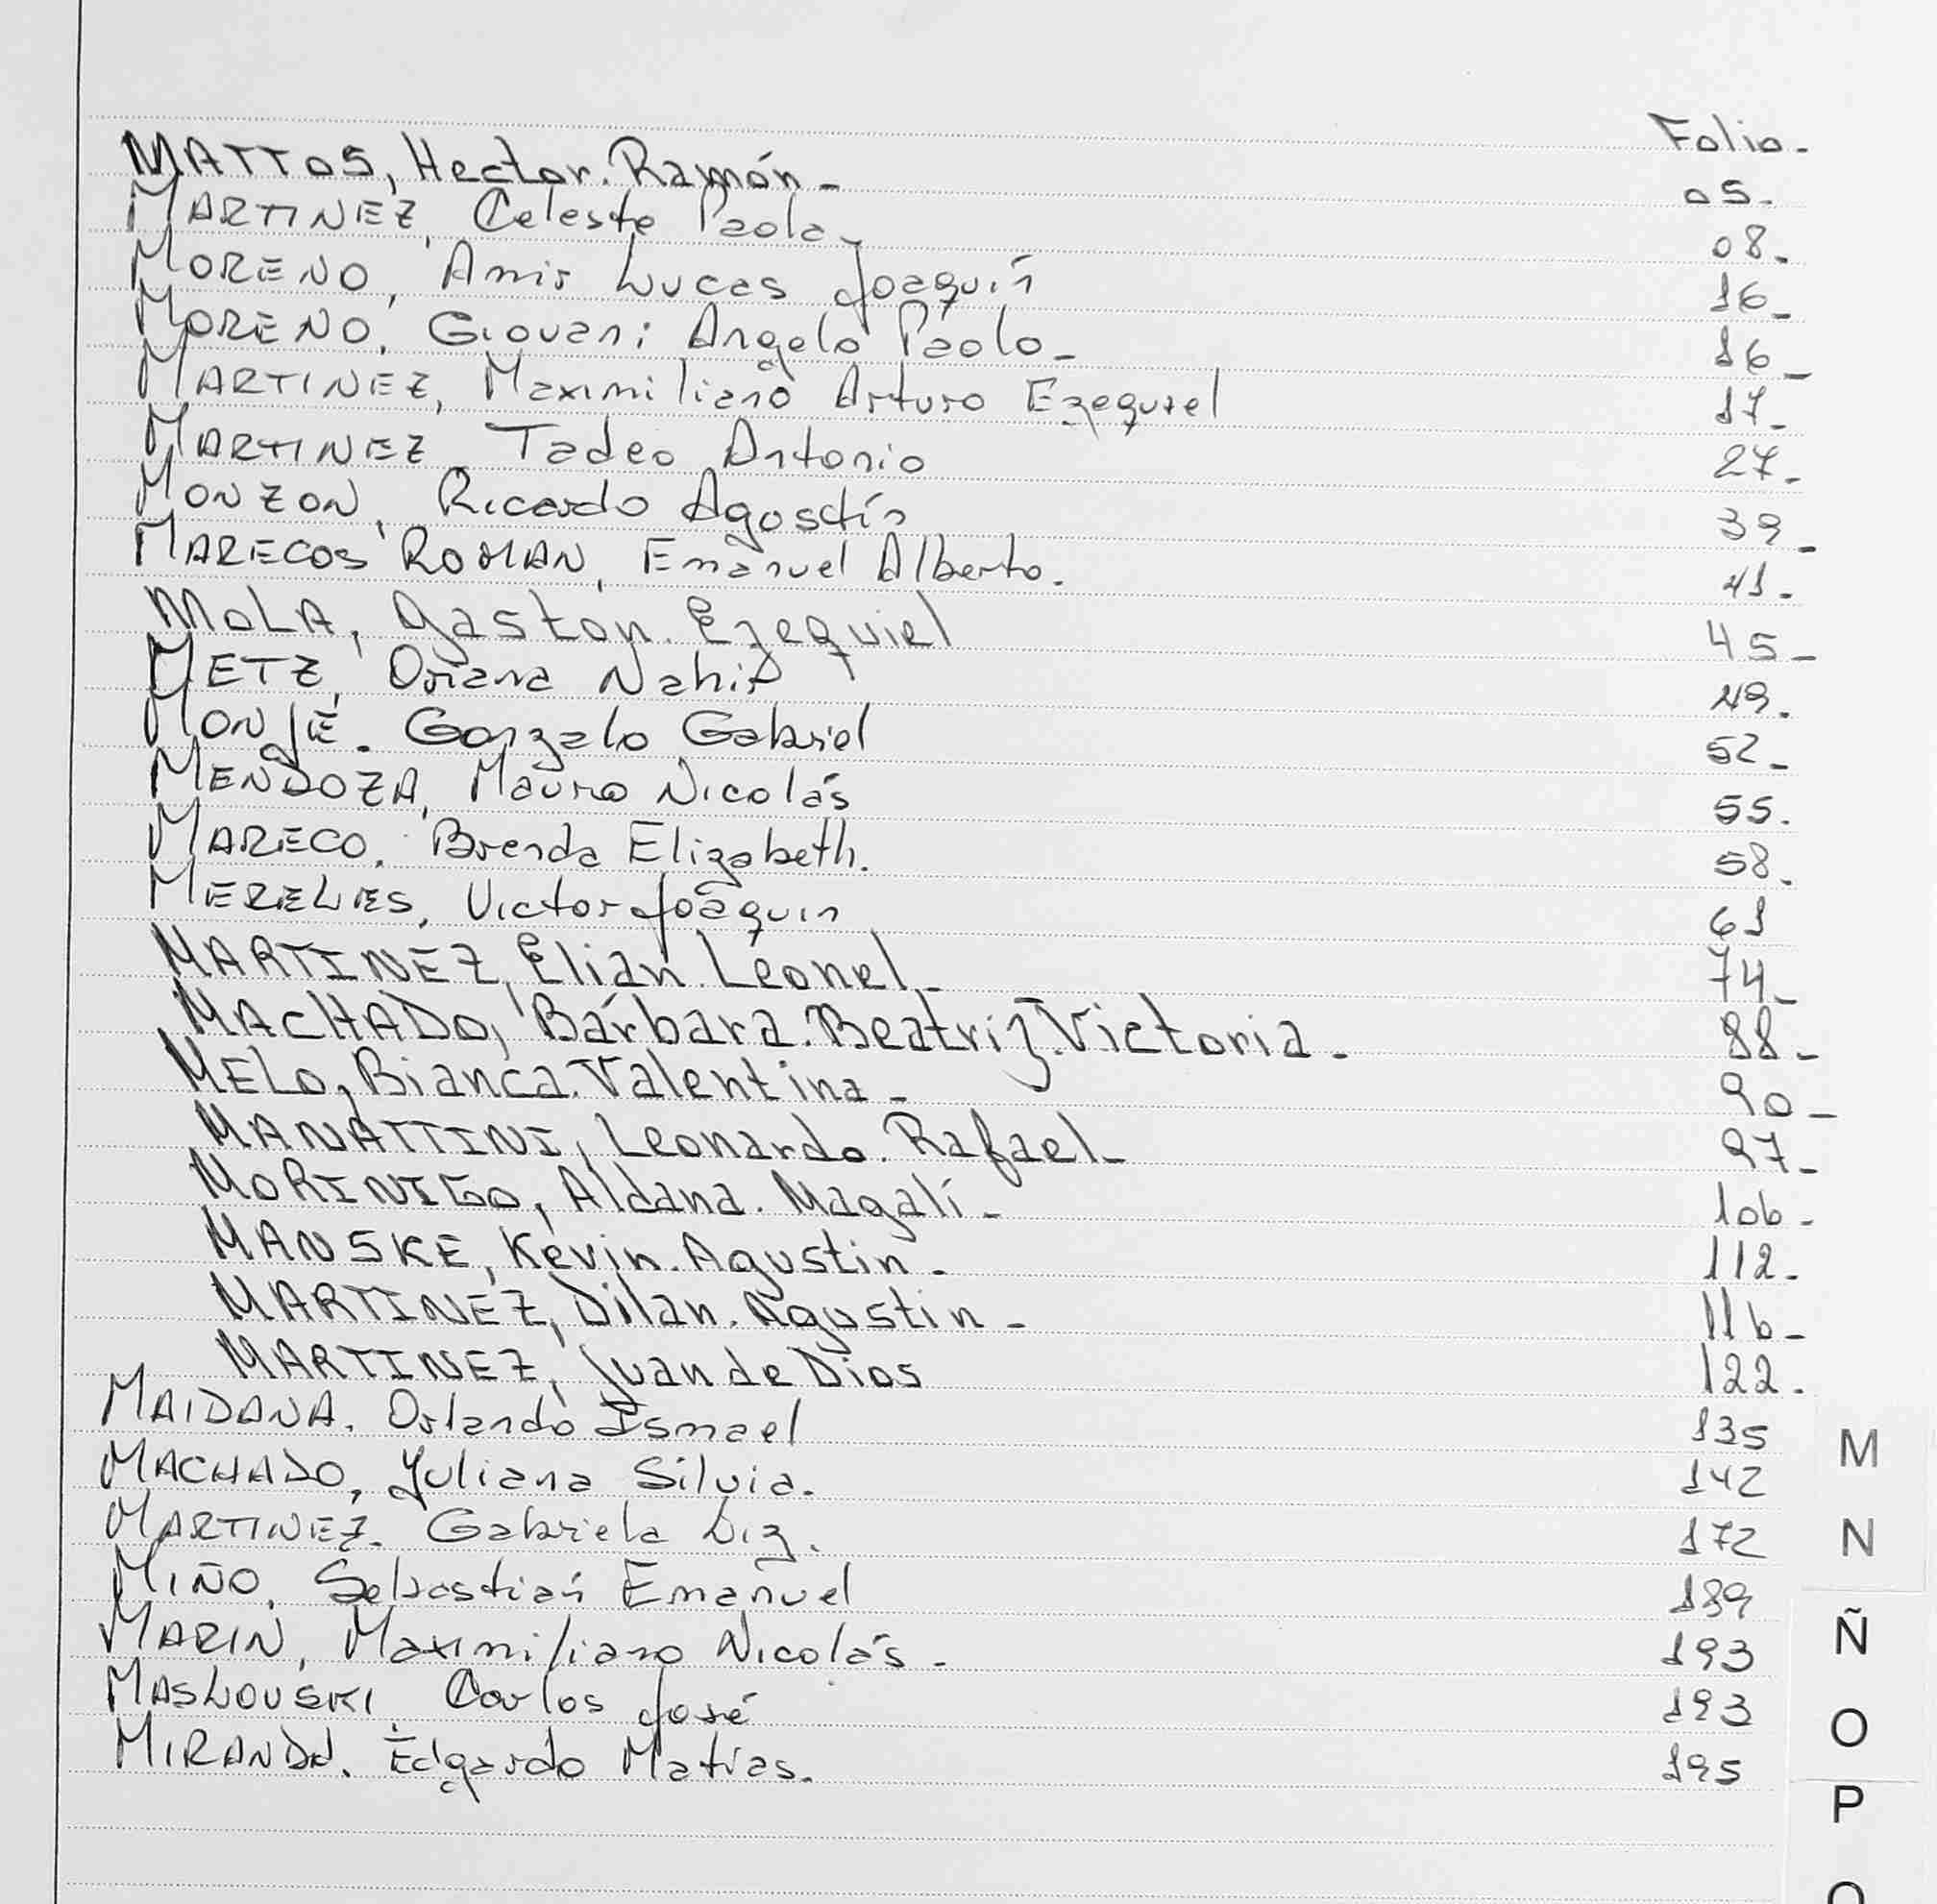 Folio-
MATTOS, Hector. Ramón- 05-
MARTINEZ, Celeste Paola- 08-
MORENO, Amir Lucas Joaquín 16-
MORENO, Giovani Angelo Paolo- 16-
MARTINEZ, Maximiliano Arturo Ezequiel 17-
MARTINEZ, Tadeo Antonio 27-
MONZON, Ricardo Agostín 39-
MARECOS ROMAN, Emanuel Alberto. 41-
MOLA, Gastón. Ezequiel 45-
METZ, Oriana Nahir 49.
MONJE. Gonzalo Gabriel 52-
MENDOZA, Mauro Nicolás 55.
MARECO. Brenda Elizabeth. 58.
MERELES, Victor Joaquin 61
MARTINEZ, Elian. Leonel- 74-
MACHADO, Bárbara. Beatriz. Victoria- 88-
MELO, Bianca. Valentina- 90-
MANATTINI, Leonardo. Rafael- 97-
MORINIGO, Aldana. Magalí- 106-
MANSKE, Kevin. Agustin- 112-
MARTINEZ, Dilan. Agustin- 116-
MARTINEZ, Juan de Dios 122.
MAIDANA. Orlando Ismael 135
MACHADO, Juliana Silvia. 142
MARTINEZ. Gabriela Liz. 172
MIÑO, Sebastián Emanuel 189
MARIN, Maximiliano Nicolás- 193
MASLOUSKI, Carlos José 193
MIRANDA. Edgardo Matías. 195
M
N
Ñ
O
P